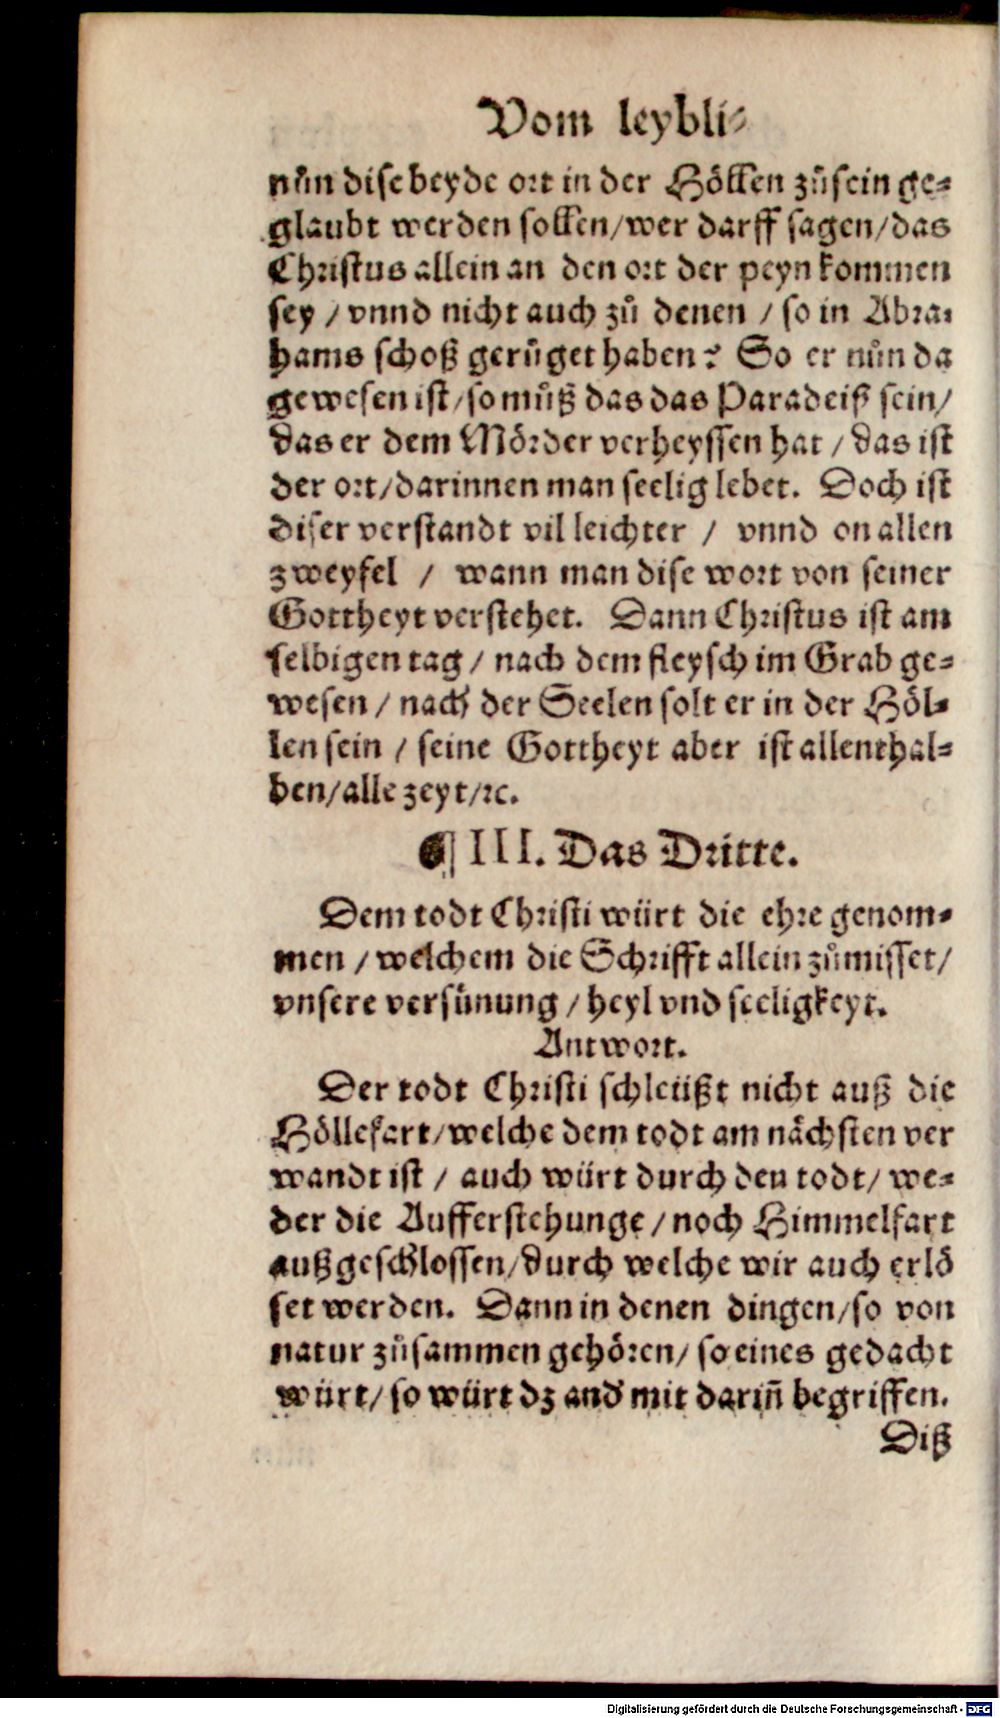 Vom leybli⸗
nůn dise beyde ort in der Höllen zůsein ge⸗
glaubt werden sollen/wer darff sagen/das
Christus allein an den ort der peyn kommen
sey / vnnd nicht auch zů denen / so in Abra⸗
hams schoß gerůget haben? So er nůn da
gewesen ist/so můß das das Paradeiß sein/
das er dem Mörder verheyssen hat / das ist
der ort/darinnen man seelig lebet. Doch ist
diser verstandt vil leichter / vnnd on allen
zweyfel / wann man dise wort von seiner
Gottheyt verstehet. Dann Christus ist am
selbigen tag / nach dem fleysch im Grab ge⸗
wesen / nach der Seelen solt er in der Höl⸗
len sein / seine Gottheyt aber ist allenthal⸗
ben/alle zeyt/ꝛc.
¶ III. Das Dritte.
Dem todt Christi würt die ehre genom⸗
men / welchem die Schrifft allein zůmisset/
vnsere versünung / heyl vnd seeligkeyt.
Antwort.
Der todt Christi schleüßt nicht auß die
Höllefart/welche dem todt am nächsten ver
wandt ist / auch würt durch den todt/ we⸗
der die Aufferstehunge / noch Himmelfart
außgeschlossen/durch welche wir auch erlö
set werden. Dann in denen dingen/so von
natur zůsammen gehören/ so eines gedacht
würt/ so würt dz and' mit dariñ begriffen.
Diß
Digitalisierung gefördert durch die Deutsche Forschungsgemeinschaft - DFG